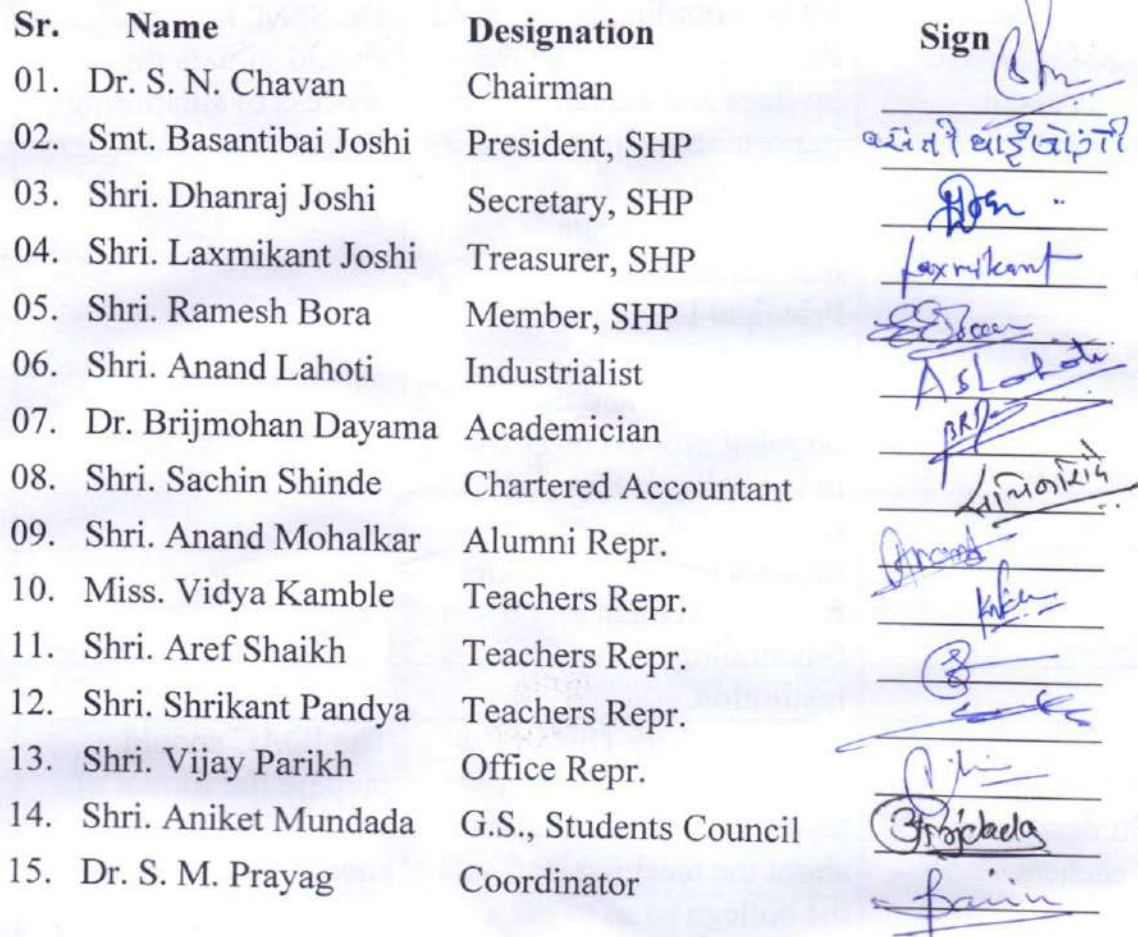 Sr. Name Designation Sign
01. Dr. S. N. Chavan Chairman
02. Smt. Basantibai Joshi President, SHP
03. Shri. Dhanraj Joshi Secretary, SHP
04. Shri. Laxmikant Joshi Treasurer, SHP Laxmikant
05. Shri. Ramesh Bora Member, SHP
06. Shri. Anand Lahoti Industrialist ASLahoti
07. Dr. Brijmohan Dayama Academician BRD
08. Shri. Sachin Shinde Chartered Accountant
09. Shri. Anand Mohalkar Alumni Repr. Anand
10. Miss. Vidya Kamble Teachers Repr.
11. Shri. Aref Shaikh Teachers Repr.
12. Shri. Shrikant Pandya Teachers Repr.
13. Shri. Vijay Parikh Office Repr.
14. Shri. Aniket Mundada G.S., Students Council
15. Dr. S. M. Prayag Coordinator